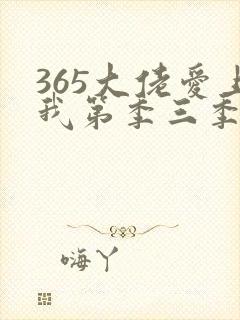 365大佬爱上
我第季三季
嗨丫